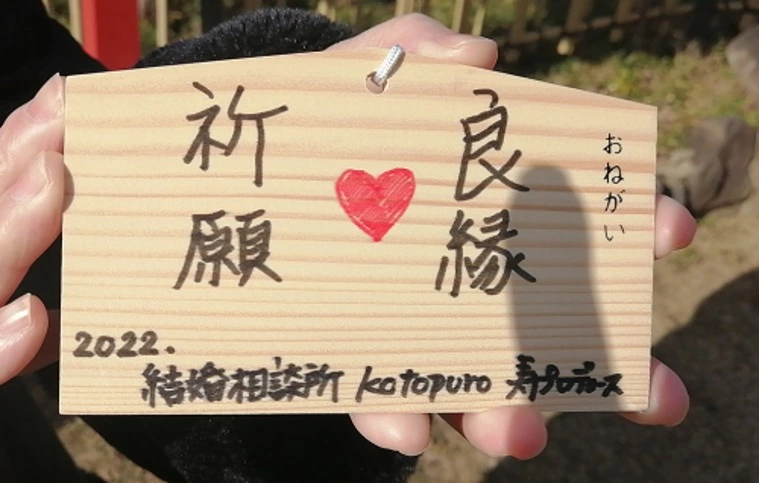 おねがい
良縁
祈願
2022.
結婚相談所 kotopuro 寿プロデュース